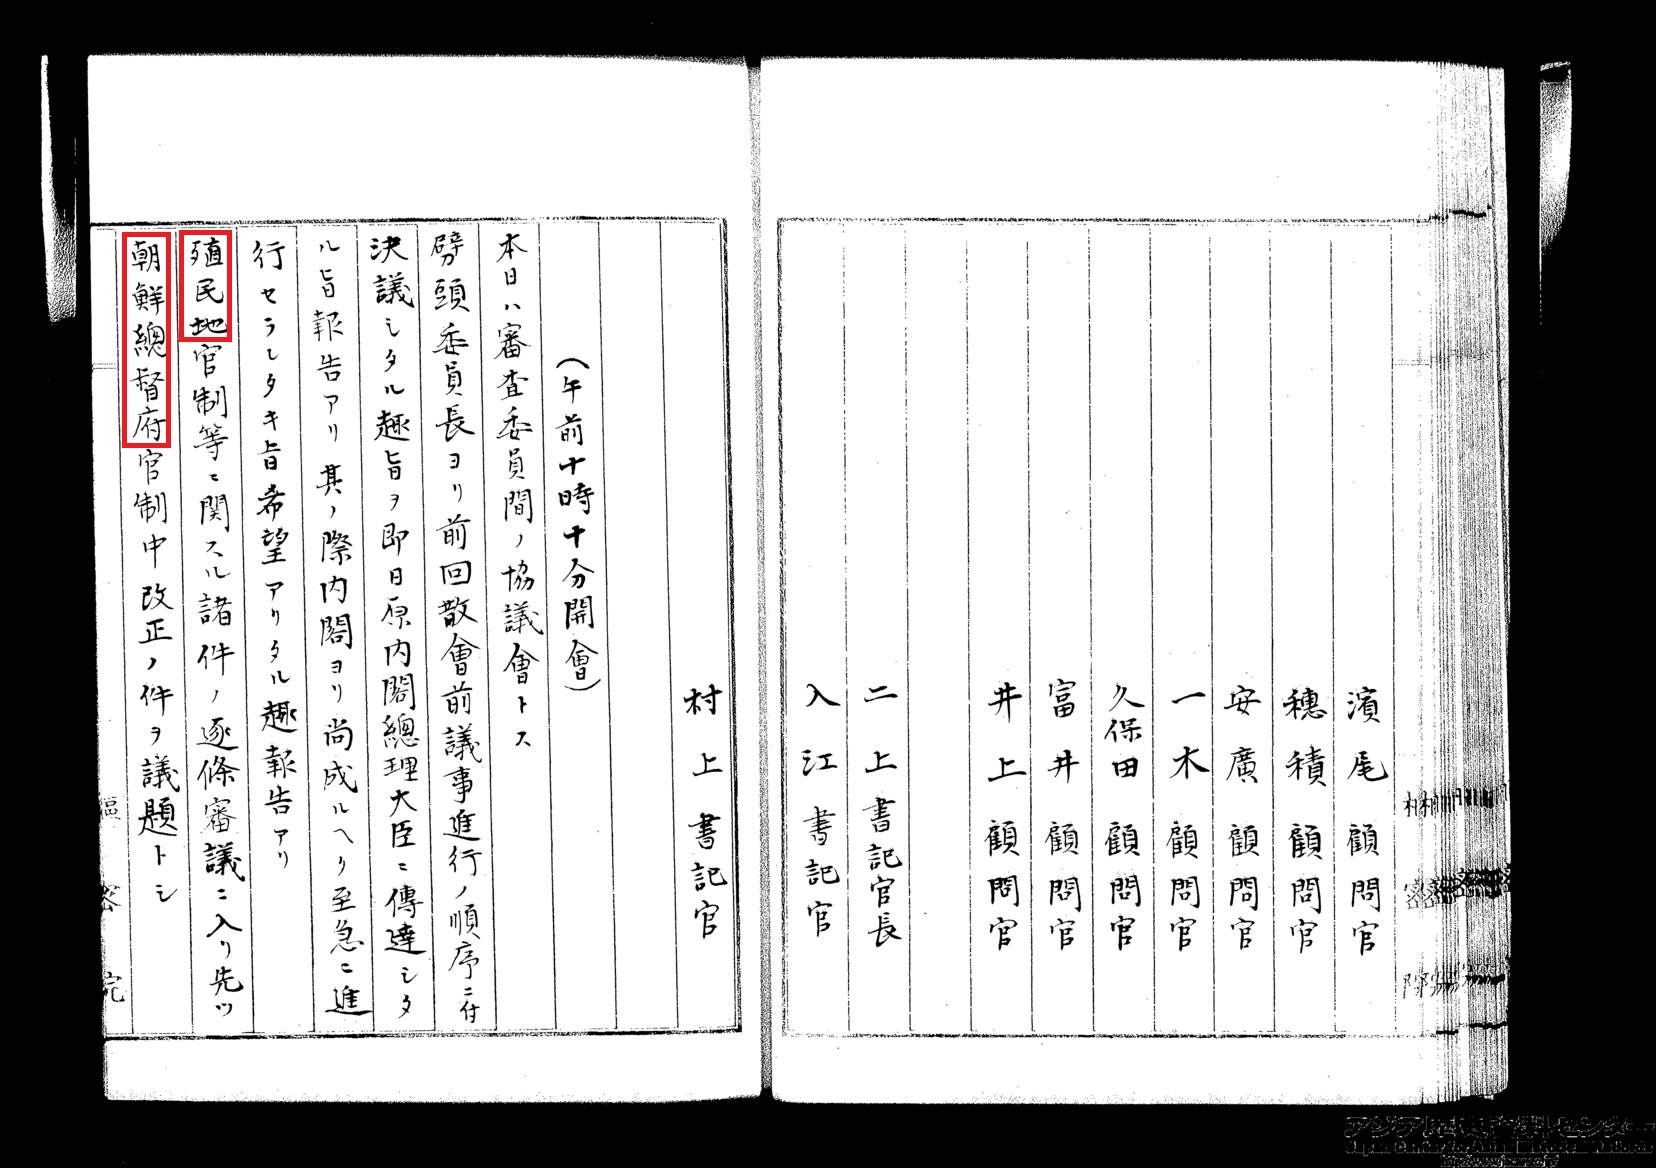 濱尾顧問官
穗積顧問官
安廣顧問官
一木顧問官
久保田顧問官
富井顧問官
井上顧問官
二上書記官長
入江書記官
村上書記官
(午前十時十分開會)
本日ハ審査委員間ノ協議會トス
劈頭委員長ヨリ前回散會前議事進行ノ順序ニ付
決議シタル趣旨ヲ即日原内閣總理大臣ニ傳達シタ
ル旨報告アリ其ノ際内閣ヨリ尚成ルヘク至急ニ進
行セラレタキ旨希望アリタル趣報告アリ
殖民地官制等ニ関スル諸件ノ逐條審議ニ入リ先ツ
朝鮮總督府官制中改正ノ件ヲ議題トシ
樞密院
アジア歴史資料センター
Japan Center for Asian Historical Records